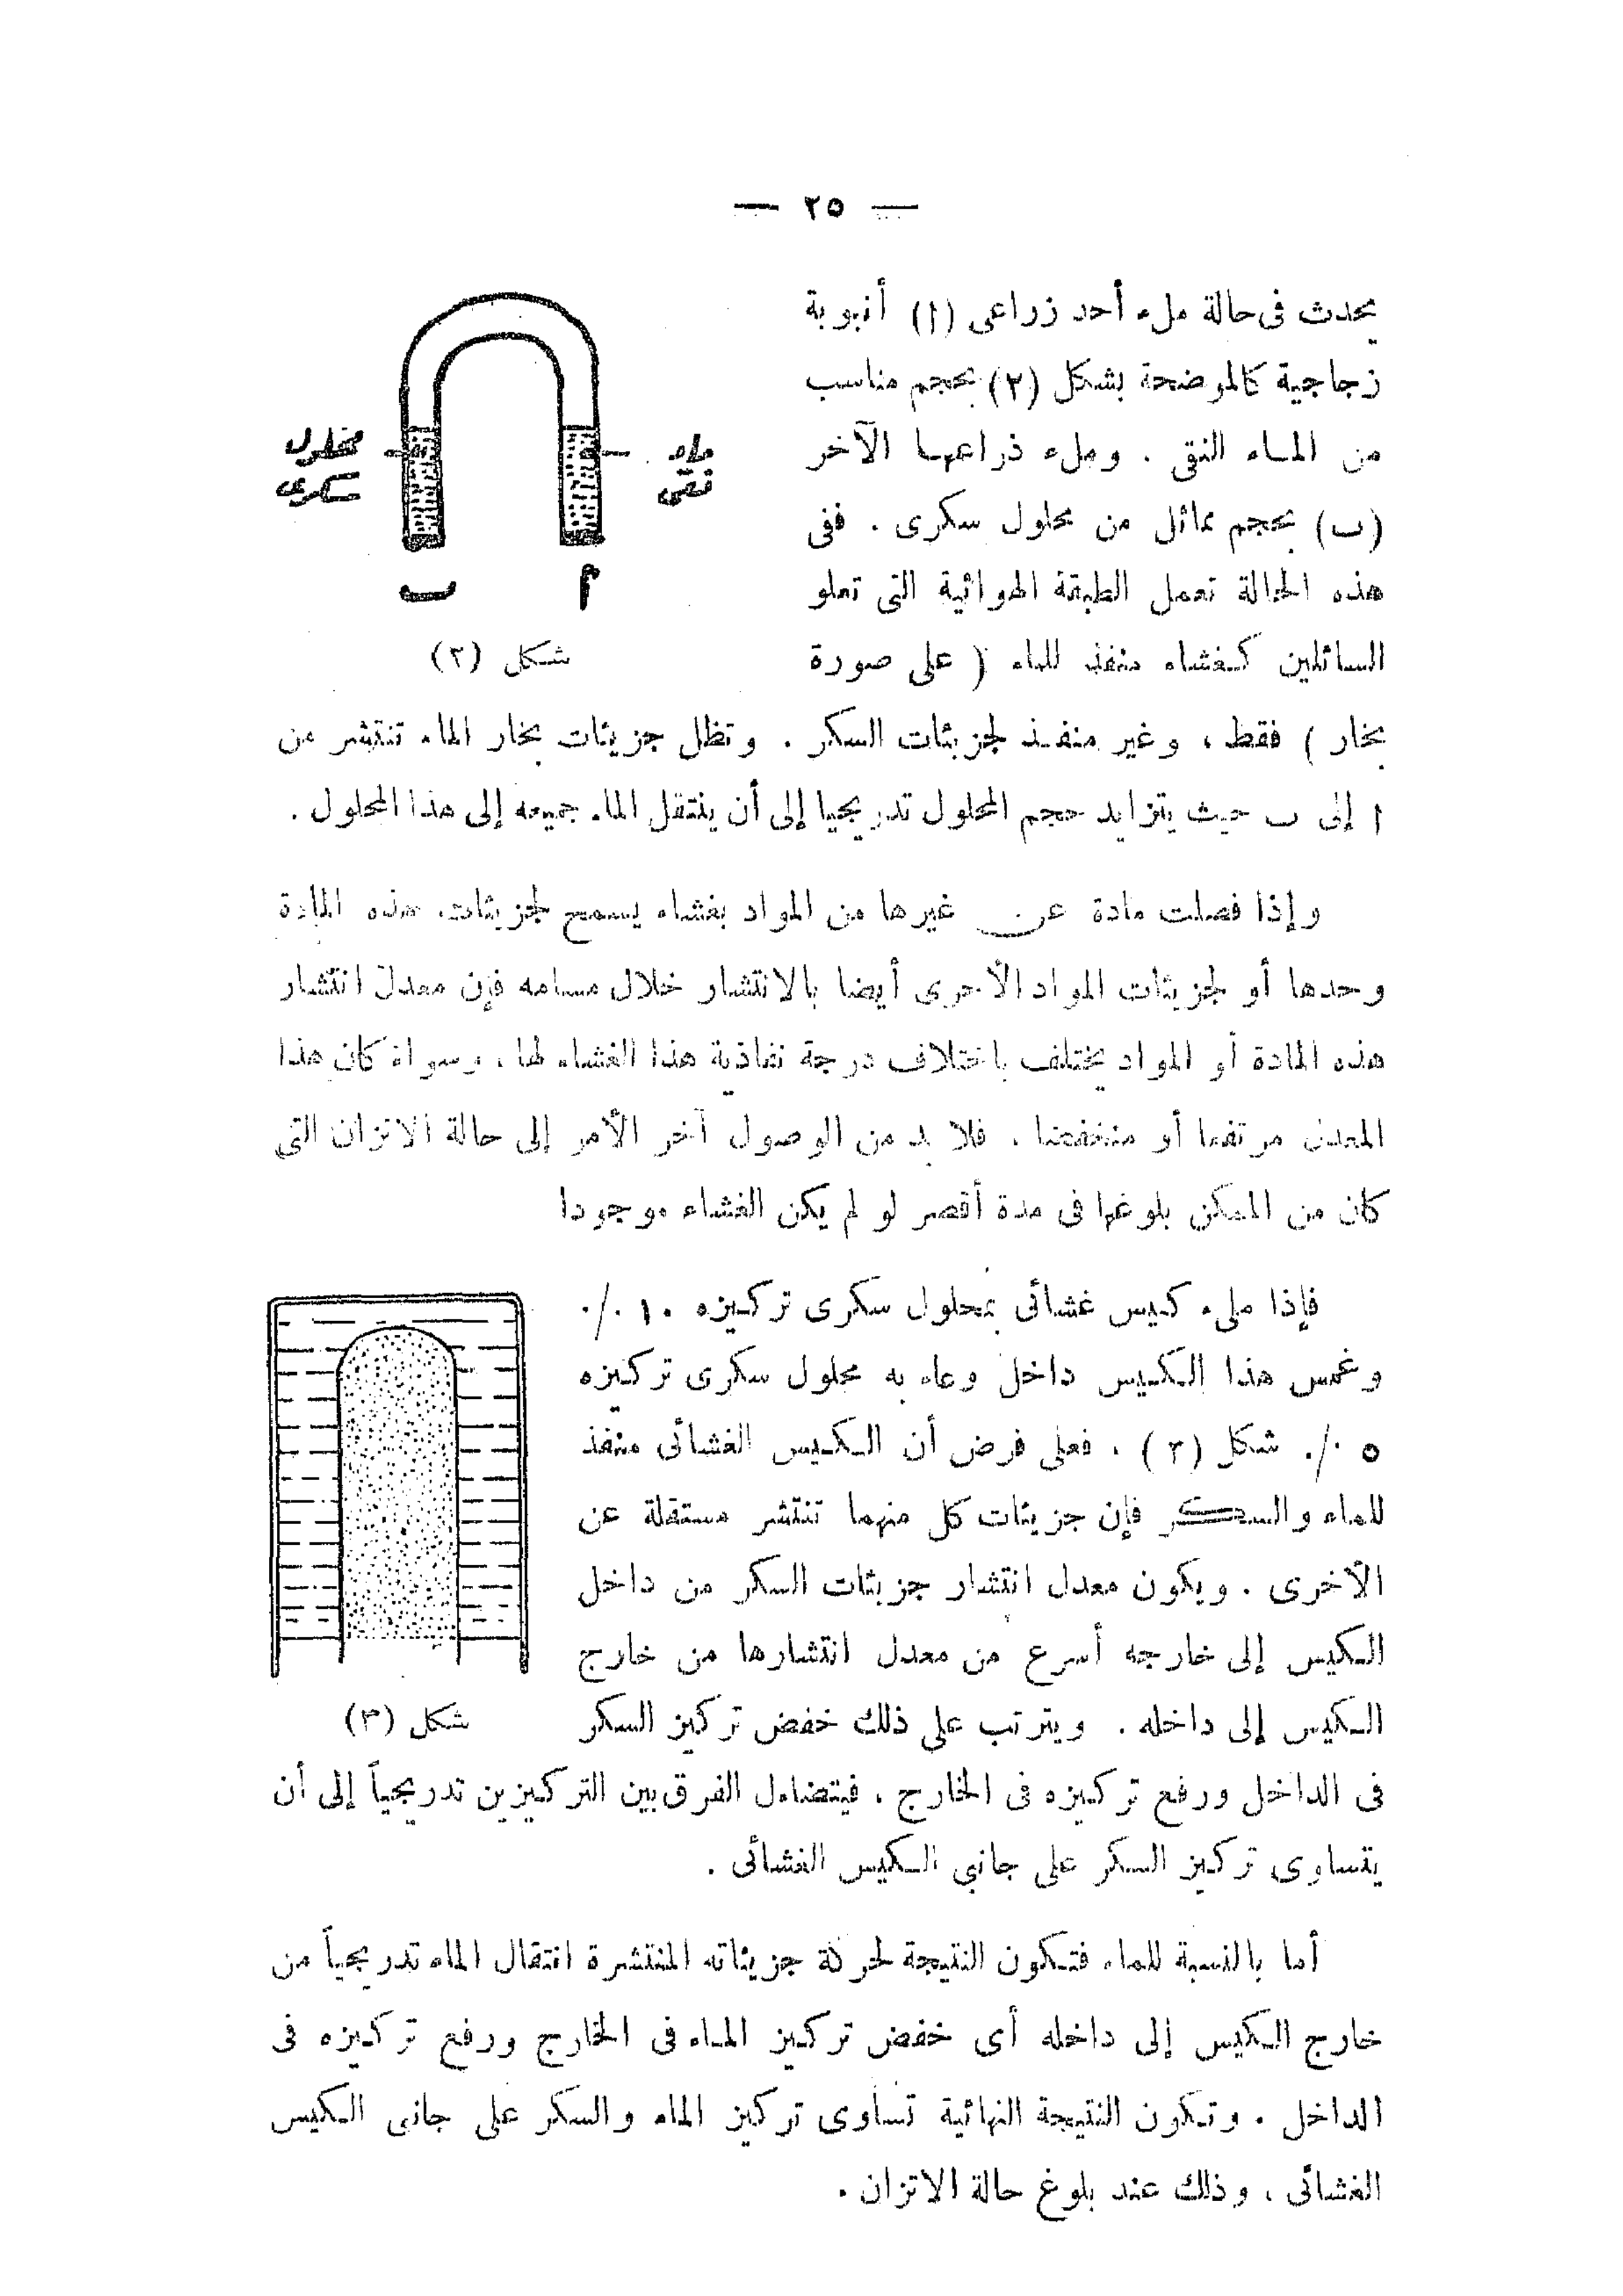 — ٢٥ —
يحدث فى حالة ملء أحد زراعى (ا) أنبوبة
زجاجية كالموضحة بشكل (٢) بحجم مناسب
من الماء النقى . وملء ذراعها الآخر
(ب) بحجم مماثل من محلول سكرى . ففى
هذه الحالة تعمل الطبقة الهوائية التى تعلو
السائلين كغشاء منفذ للماء ( على صورة
محلول
سكرى
ماء
نقى
ب
أ
شكل (٢)
بخار ) فقط ، وغير منفذ لجزيئات السكر . وتظل جزيئات بخار الماء تنتشر من
ا إلى ب حيث يتزايد حجم المحلول تدريجيا إلى أن ينتقل الماء جميعه إلى هذا المحلول .
وإذا فصلت مادة عن غيرها من المواد بغشاء يسمح لجزيئات هذه المادة
وحدها أو لجزيئات المواد الأخرى أيضا بالانتشار خلال مسامه فإن معدل انتشار
هذه المادة أو المواد يختلف باختلاف درجة نفاذية هذا الغشاء لها ، وسواء كان هذا
المعدل مرتفعا أو منخفضا ، فلا بد من الوصول آخر الأمر إلى حالة الاتزان التى
كان من الممكن بلوغها فى مدة أقصر لو لم يكن الغشاء موجودا
فإذا ملىء كيس غشائى بمحلول سكرى تركيزه ١٠ ٪
وغمس هذا الكيس داخل وعاء به محلول سكرى تركيزه
٥ ٪ شكل (٣) ، فعلى فرض أن الكيس الغشائى منفذ
للماء والسكر فإن جزيئات كل منهما تنتشر مستقلة عن
الأخرى . ويكون معدل انتشار جزيئات السكر من داخل
الكيس إلى خارجه أسرع من معدل انتشارها من خارج
الكيس إلى داخله . ويترتب على ذلك خفض تركيز السكر
شكل (٣)
فى الداخل ورفع تركيزه فى الخارج ، فيتضاءل الفرق بين التركيزين تدريجياً إلى أن
يتساوى تركيز السكر على جانبى الكيس الغشائى .
أما بالنسبة للماء فتكون النتيجة لحركة جزيئاته المنتشرة انتقال الماء تدريجياً من
خارج الكيس إلى داخله أى خفض تركيز الماء فى الخارج ورفع تركيزه فى
الداخل . وتكون النتيجة النهائية تساوى تركيز الماء والسكر على جانبى الكيس
الغشائى ، وذلك عند بلوغ حالة الاتزان .